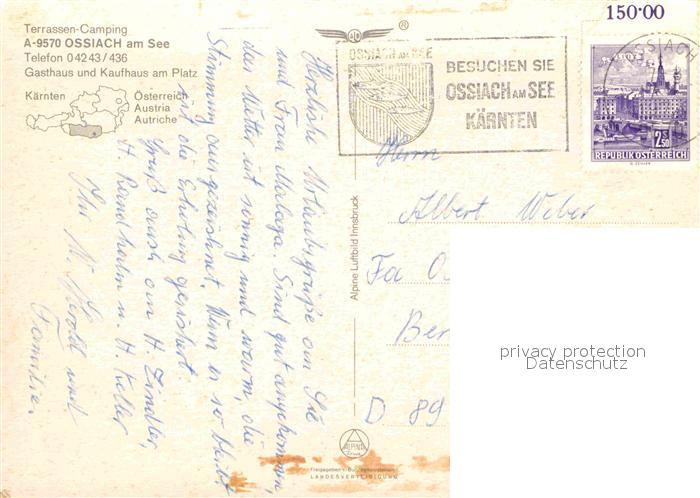 Terrassen-Camping
A-9570 OSSIACH am See
Telefon 04243/436
Gasthaus und Kaufhaus am Platz
Kärnten
Österreich
Austria
Autriche
Herzliche Urlaubsgrüße an Sie
und Frau Malaga. Sind gut angekommen,
das Wetter ist sonnig und warm, die
Stimmung ausgezeichnet. Wenn es so bleibt
ist die Erholung gesichert.
Gruß auch an H. Zindler,
H. Randhahn u. H. Keller
Ihr W. und
Familie.
Alpine Luftbild Innsbruck
ALPINE
Freigegeben v. Bundesministerium
LANDESVERTEIDIGUNG
®
OSSIACH AM SEE
BESUCHEN SIE
OSSIACH AM SEE
KÄRNTEN
150·00
OSSIACH
2.50
REPUBLIK ÖSTERREICH
Herrn
Albert Weber
Fa
Ber
D 89
privacy protection
Datenschutz